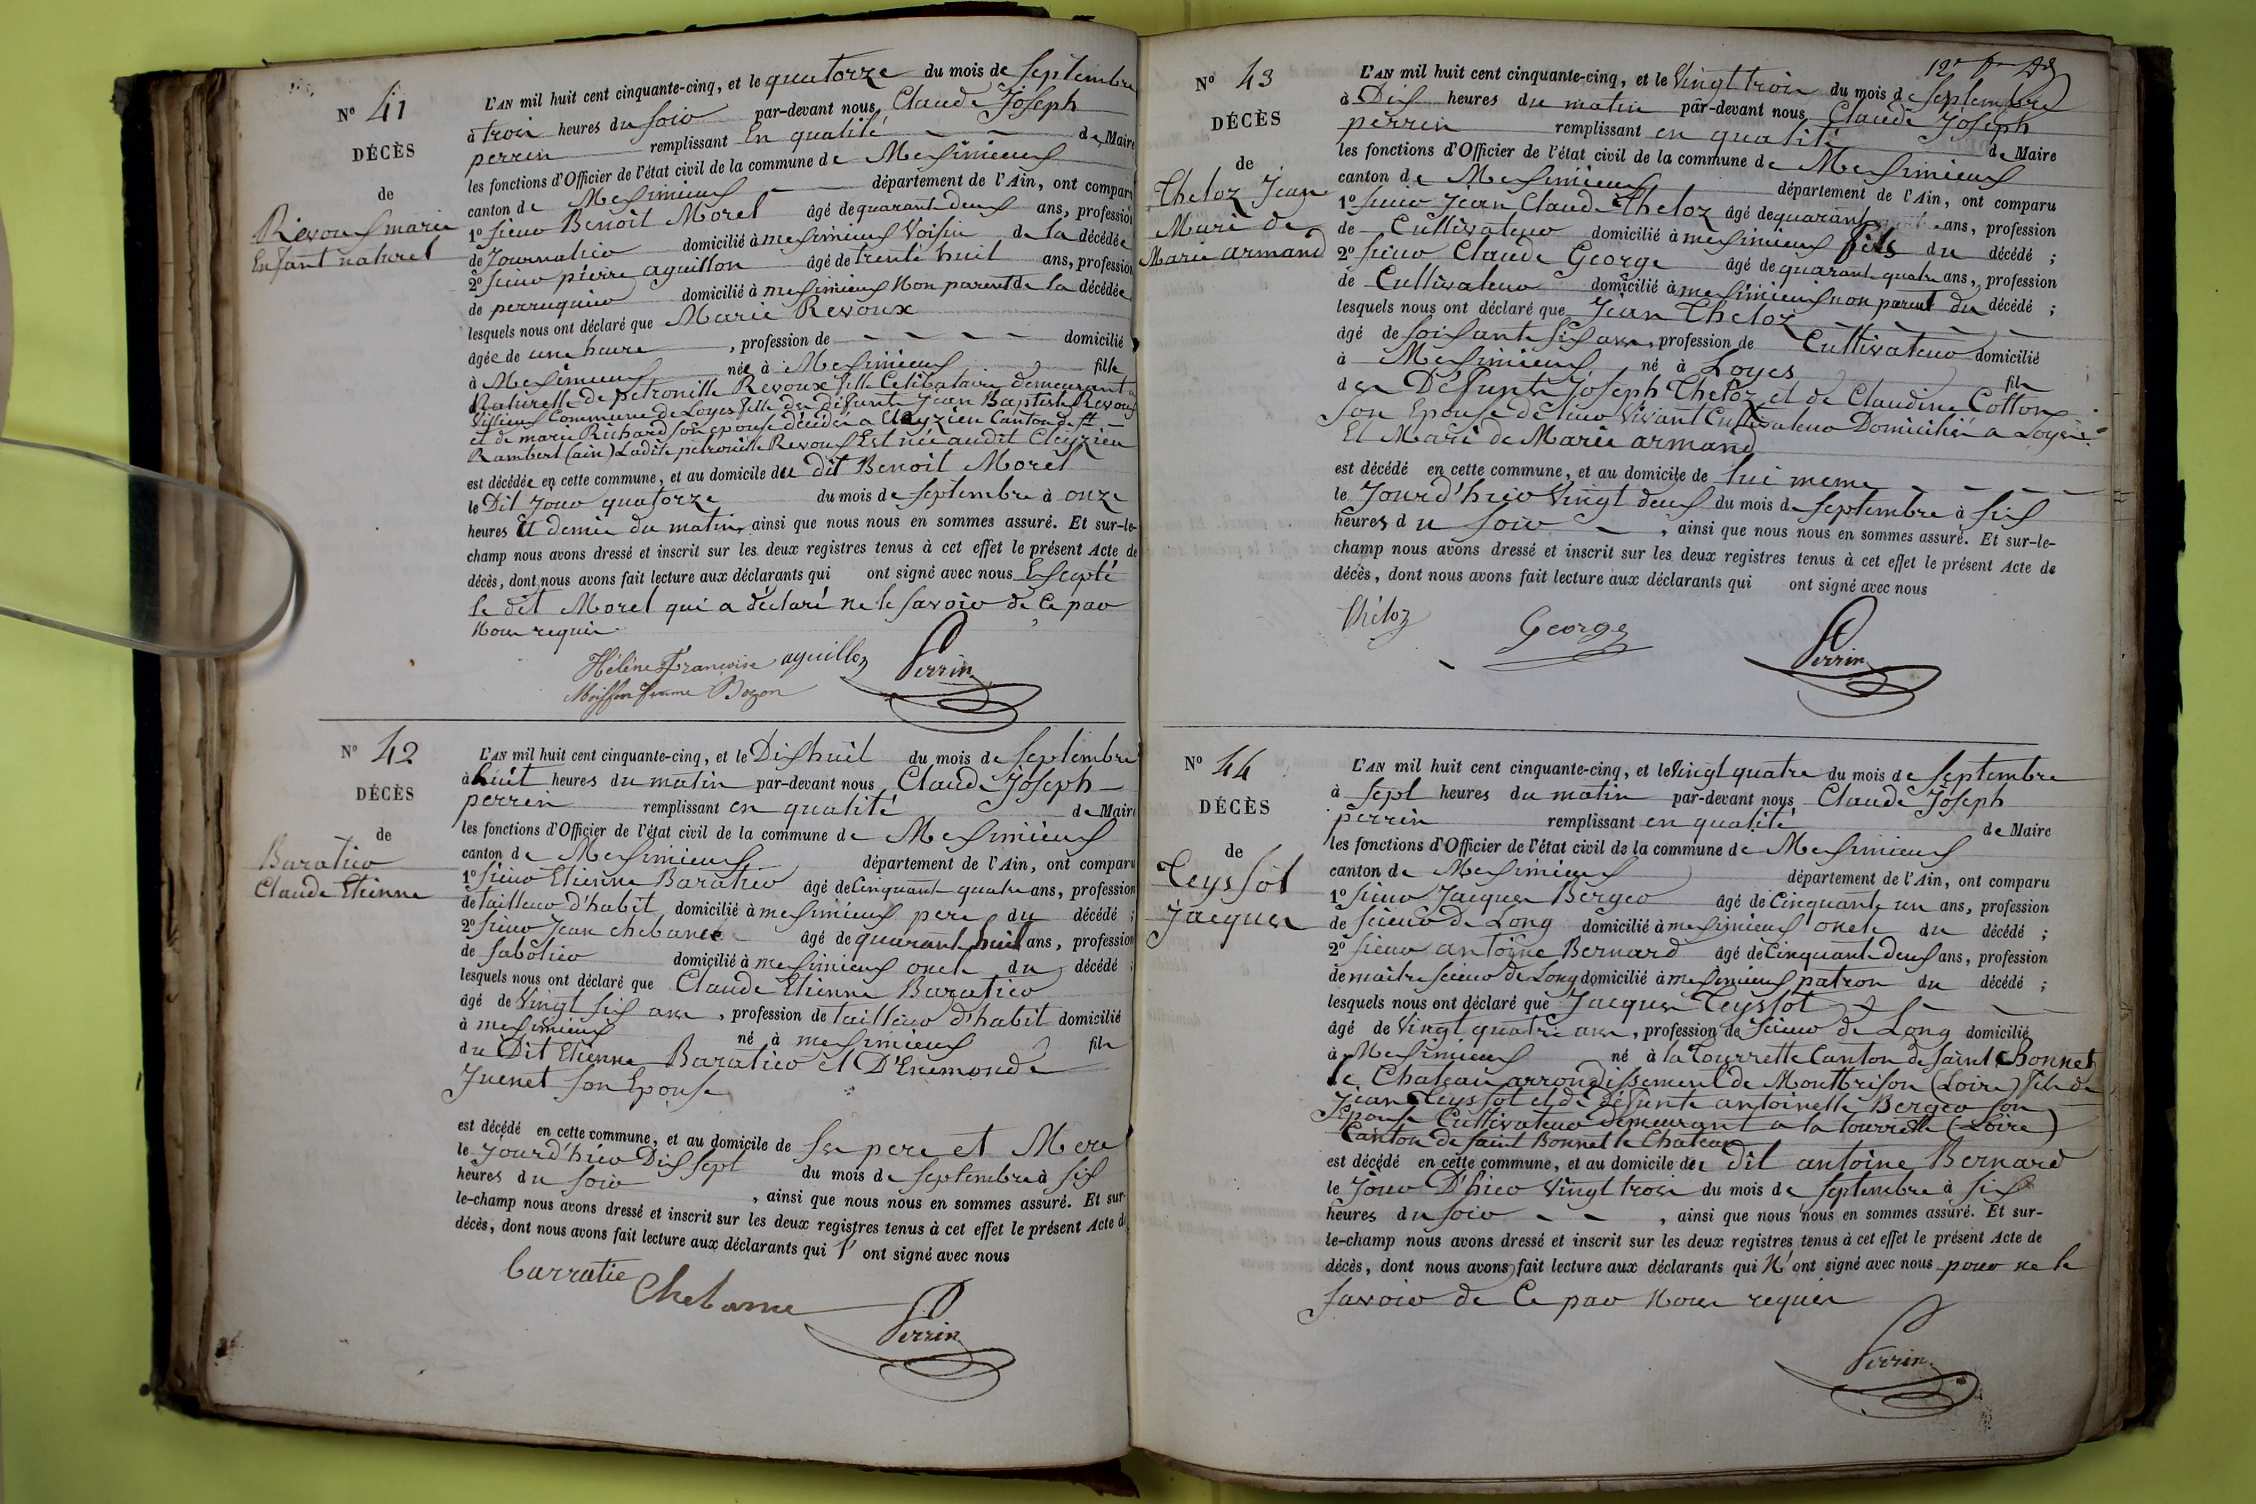 N° 41
DÉCÈS
de
Revoux marie
Enfant naturel
L'AN mil huit cent cinquante-cinq, et le quatorze du mois de Septembre
à trois heures du soir par-devant nous, Claude Joseph
perrin remplissant En qualité de Maire
les fonctions d'Officier de l'état civil de la commune de Meximieux
canton de Meximieux département de l'Ain, ont comparu
1° sieur Benoit Morel âgé de quarante deux ans, profession
de Journalier domicilié à meximieux Voisin de la décédée
2° sieur pierre aguillon âgé de trente huit ans, profession
de perruquier domicilié à meximieux Non parent de la décédée
lesquels nous ont déclaré que Marie Revoux
âgée de une heure , profession de domicilié
à Meximieux née à Meximieux fille
Naturelle de petronille Revoux fille Celibataire demeurant à
Commune de Loyes fille de défunts Jean Baptiste Revoux
et de marie Richard son epouse décédée à Cleyzieu Canton de St
Rambert (ain) Ladite petronille Revoux Est née audit Cleyzieu
est décédée en cette commune, et au domicile du dit Benoit Morel
le Dit Jour quatorze du mois de septembre à onze
heures Et demie du matin, ainsi que nous nous en sommes assuré. Et sur-le-
champ nous avons dressé et inscrit sur les deux registres tenus à cet effet le présent Acte de
décès, dont nous avons fait lecture aux déclarants qui ont signé avec nous Excepté
le dit Morel qui a déclaré ne le savoir de Ce par
Nous requis
Hélène Françoise aguillon Perrin
femme Bozon
N° 42
DÉCÈS
de
Baratier
Claude Etienne
L'AN mil huit cent cinquante-cinq, et le Dix huit du mois de Septembre
à huit heures du matin par-devant nous Claude Joseph
perrin remplissant en qualité de Maire
les fonctions d'Officier de l'état civil de la commune de Meximieux
canton de Meximieux département de l'Ain, ont comparu
1° sieur Etienne Baratier âgé de Cinquante quatre ans, profession
de tailleur d'habit domicilié à meximieux pere du décédé ;
2° sieur Jean chebance âgé de quarante huit ans, profession
de sabotier domicilié à meximieux oncle du décédé ;
lesquels nous ont déclaré que Claude Etienne Baratier
âgé de Vingt six ans, profession de tailleur d'habit domicilié
à meximieux né à meximieux fils
du Dit Etienne Baratier et D'Enemonde
Juenet son Epouse
est décédé en cette commune, et au domicile de ses pere et Mere
le Jour d'hier Dix sept du mois de septembre à six
heures du soir , ainsi que nous nous en sommes assuré. Et sur-
le-champ nous avons dressé et inscrit sur les deux registres tenus à cet effet le présent Acte de
décès, dont nous avons fait lecture aux déclarants qui l' ont signé avec nous
barratie Chebance Perrin
N° 43
DÉCÈS
de
Theloz Jean
Mari de
Marie armand
L'AN mil huit cent cinquante-cinq, et le Vingt trois du mois de Septembre
à Dix heures du matin par-devant nous Claude Joseph
perrin remplissant en qualité de Maire
les fonctions d'Officier de l'état civil de la commune de Meximieux
canton de Meximieux département de l'Ain, ont comparu
1° sieur Jean Claude Theloz âgé de quarante ans, profession
de Cultivateur domicilié à meximieux fils du décédé ;
2° sieur Claude George âgé de quarante quatre ans, profession
de Cultivateur domicilié à meximieux non parent du décédé ;
lesquels nous ont déclaré que Jean Theloz
âgé de soixante six ans, profession de Cultivateur domicilié
à Meximieux né à Loyes fils
des Défunts Joseph Theloz et de Claudine Cotton
son Epouse de leur Vivant Cultivateur Domiciliés à Loyes
Et Mari de Marie armand
est décédé en cette commune, et au domicile de lui meme
le Jour d'hier Vingt deux du mois de septembre à six
heures du soir , ainsi que nous nous en sommes assuré. Et sur-le-
champ nous avons dressé et inscrit sur les deux registres tenus à cet effet le présent Acte de
décès, dont nous avons fait lecture aux déclarants qui ont signé avec nous
théloz George Perrin
N° 44
DÉCÈS
de
Teyssot
Jacques
L'AN mil huit cent cinquante-cinq, et le Vingt quatre du mois de Septembre
à sept heures du matin par-devant nous Claude Joseph
perrin remplissant en qualité de Maire
les fonctions d'Officier de l'état civil de la commune de Meximieux
canton de Meximieux département de l'Ain, ont comparu
1° sieur Jacques Berger âgé de Cinquante un ans, profession
de scieur de Long domicilié à meximieux oncle du décédé ;
2° sieur antoine Bernard âgé de Cinquante deux ans, profession
de maître scieur de Long domicilié à meximieux patron du décédé ;
lesquels nous ont déclaré que Jacques Teyssot
âgé de Vingt quatre ans, profession de scieur de Long domicilié
à Meximieux né à la tourrette Canton de saint Bonnet
le Chateau arrondissement de Montbrison (Loire) fils de
Jean Teyssot et de Défunte antoinette Berger son
Epouse Cultivateur Demeurant a la tourrette (Loire)
Canton de saint Bonnet le Chateau
est décédé en cette commune, et au domicile du dit antoine Bernard
le Jour D'hier Vingt trois du mois de septembre à six
heures du soir , ainsi que nous nous en sommes assuré. Et sur-
le-champ nous avons dressé et inscrit sur les deux registres tenus à cet effet le présent Acte de
décès, dont nous avons fait lecture aux déclarants qui N' ont signé avec nous pour ne le
savoir de Ce par Nous requis
Perrin